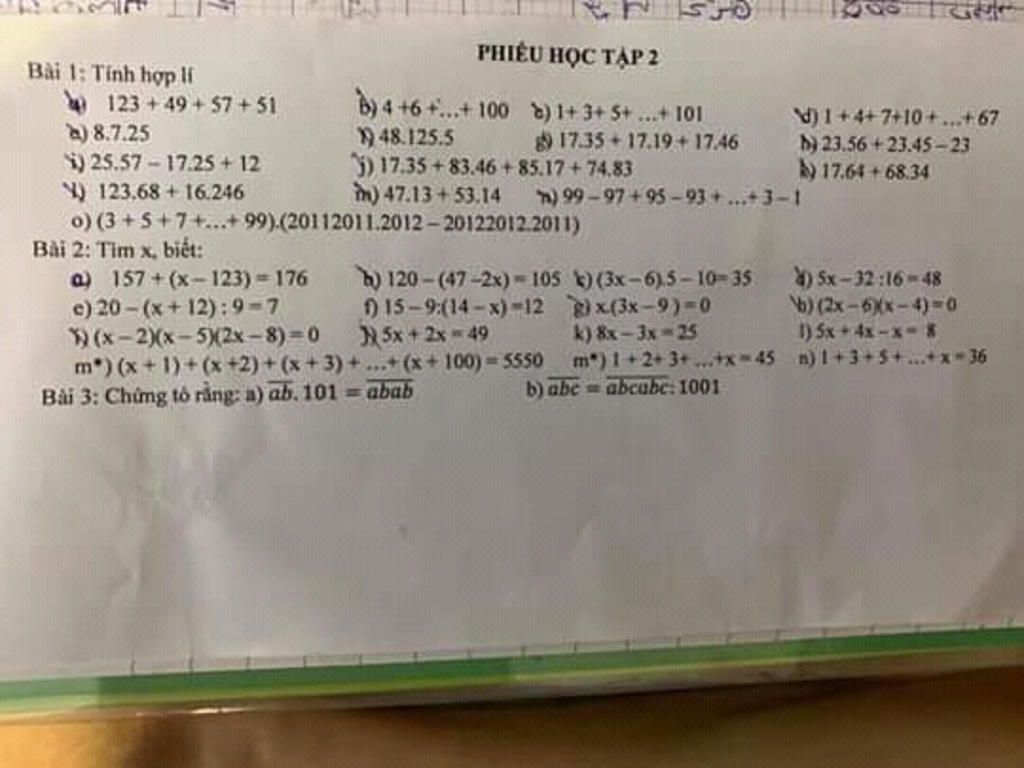 PHIẾU HỌC TẬP 2
Bài 1: Tính hợp lí
a) 123 + 49 + 57 + 51 b) 4 +6 +...+ 100 c) 1+ 3+ 5+ ...+ 101 d) 1 + 4+ 7+10 + ...+ 67
e) 8.7.25 f) 48.125.5 g) 17.35 + 17.19 + 17.46 h) 23.56 + 23.45 – 23
i) 25.57 – 17.25 + 12 j) 17.35 + 83.46 + 85.17 + 74.83 k) 17.64 + 68.34
l) 123.68 + 16.246 m) 47.13 + 53.14 n) 99 – 97 + 95 – 93 + ...+ 3 – 1
o) (3 + 5 + 7 +...+ 99).(20112011.2012 – 20122012.2011)
Bài 2: Tìm x, biết:
a) 157 + (x – 123) = 176 b) 120 – (47 –2x) = 105 c) (3x – 6).5 – 10= 35 d) 5x – 32 :16 = 48
e) 20 – (x + 12) : 9 = 7 f) 15 – 9:(14 – x) =12 g) x.(3x – 9 ) = 0 h) (2x – 6)(x – 4) = 0
i) (x – 2)(x – 5)(2x – 8) = 0 j) 5x + 2x = 49 k) 8x – 3x = 25 l) 5x + 4x – x = 8
m*) (x + 1) + (x +2) + (x + 3) + ...+ (x + 100) = 5550 m*) 1 + 2+ 3+ ...+x = 45 n) 1 + 3 + 5 + ...+ x = 36
Bài 3: Chứng tỏ rằng: a) a̅b̅. 101 = a̅b̅a̅b̅ b) a̅b̅c̅ = a̅b̅c̅a̅b̅c̅: 1001